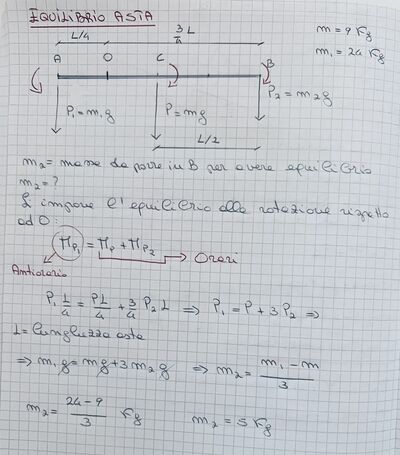 EQUILIBRIO ASTA
m = 9 Kg
m₁ = 24 Kg
L/4
3/4 L
A O C B
P₁ = m₁g P = mg P₂ = m₂g
L/2
m₂ = massa da porre in B per avere equilibrio
m₂ = ?
Si impone l'equilibrio alla rotazione rispetto
ad O:
M_P₁ = M_P + M_P₂ → Orari
Antiorario
P₁ L/4 = PL/4 + 3/4 P₂ L ⇒ P₁ = P + 3P₂ ⇒
L = lunghezza asta
⇒ m₁g = mg + 3m₂g ⇒ m₂ = (m₁ - m)/3
m₂ = (24 - 9)/3 Kg m₂ = 5 Kg